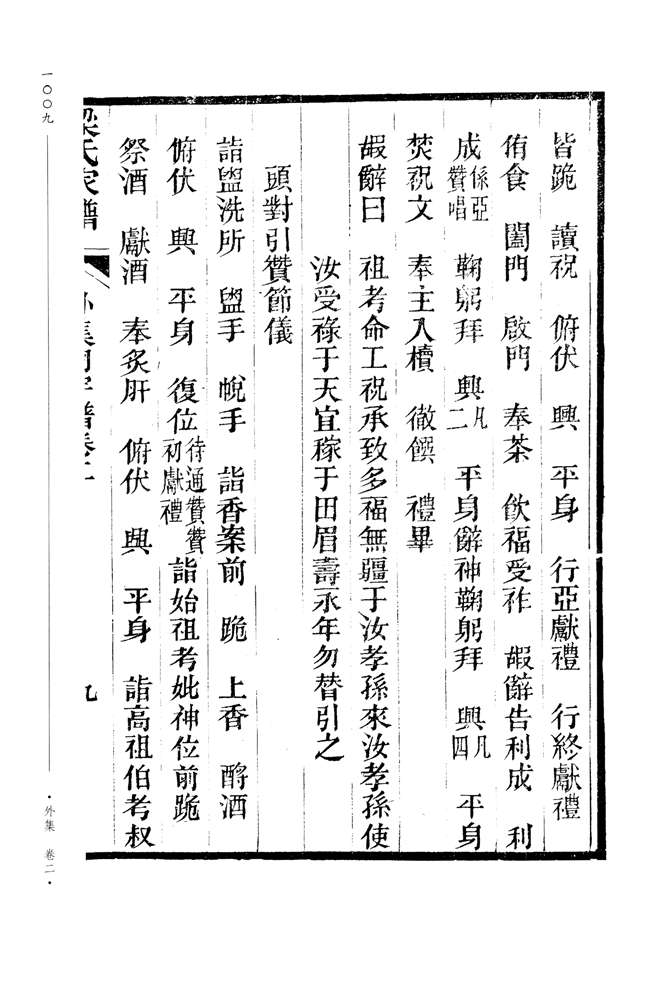 皆跪　讀祝　俯伏　興　平身　行亞獻禮　行終獻禮
侑食　闔門　啟門　奉茶　飲福受祚　嘏辭告利成　利
成係亞贊唱　鞠躬拜　興凡二　平身辭神鞠躬拜　興凡四　平身
焚祝文　奉主入櫝　徹饌　禮畢
嘏辭曰　祖考命工祝承致多福無疆于汝孝孫來汝孝孫使
汝受祿于天宜稼于田眉壽永年勿替引之
頭對引贊節儀
詣盥洗所　盥手　帨手　詣香案前　跪　上香　酹酒
俯伏　興　平身　復位待通贊贊初獻禮　詣始祖考妣神位前跪
祭酒　獻酒　奉炙肝　俯伏　興　平身　詣高祖伯考叔
梁氏家譜
九
一〇〇九
·外集　卷二·